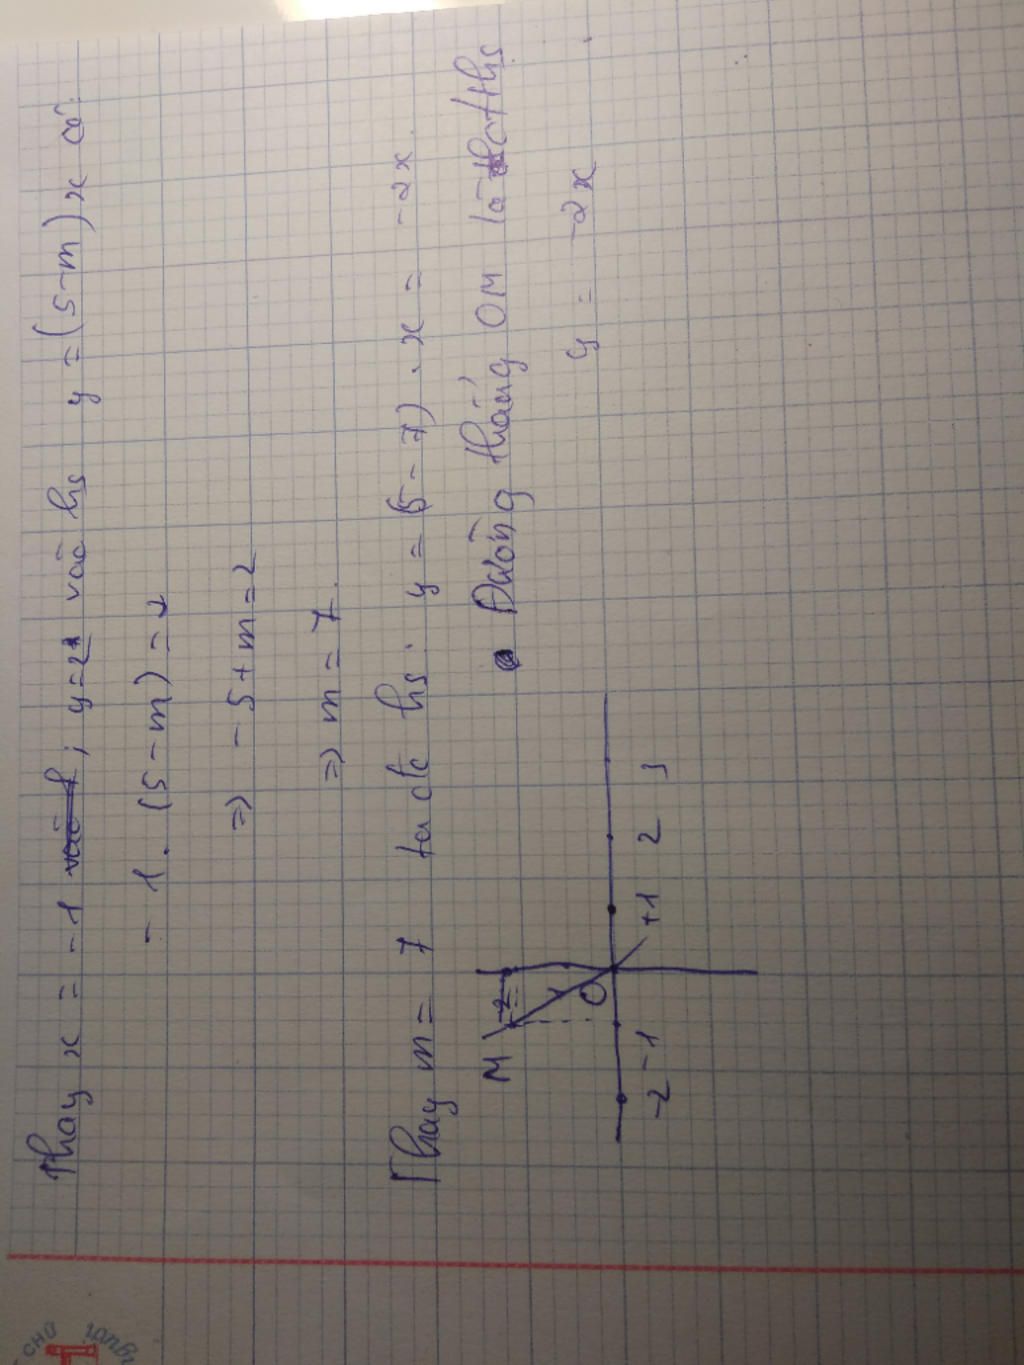 Thay x = -1 ; y=2 vào hs y = (5-m)x có:
-1. (5-m) = 2
=) -5+m=2
=) m = 7.
Thay m = 7 ta đc hs: y = (5-7).x = -2x
• Đường thẳng OM là đths
y = -2x
M 2
O
-2 -1 +1 2 3